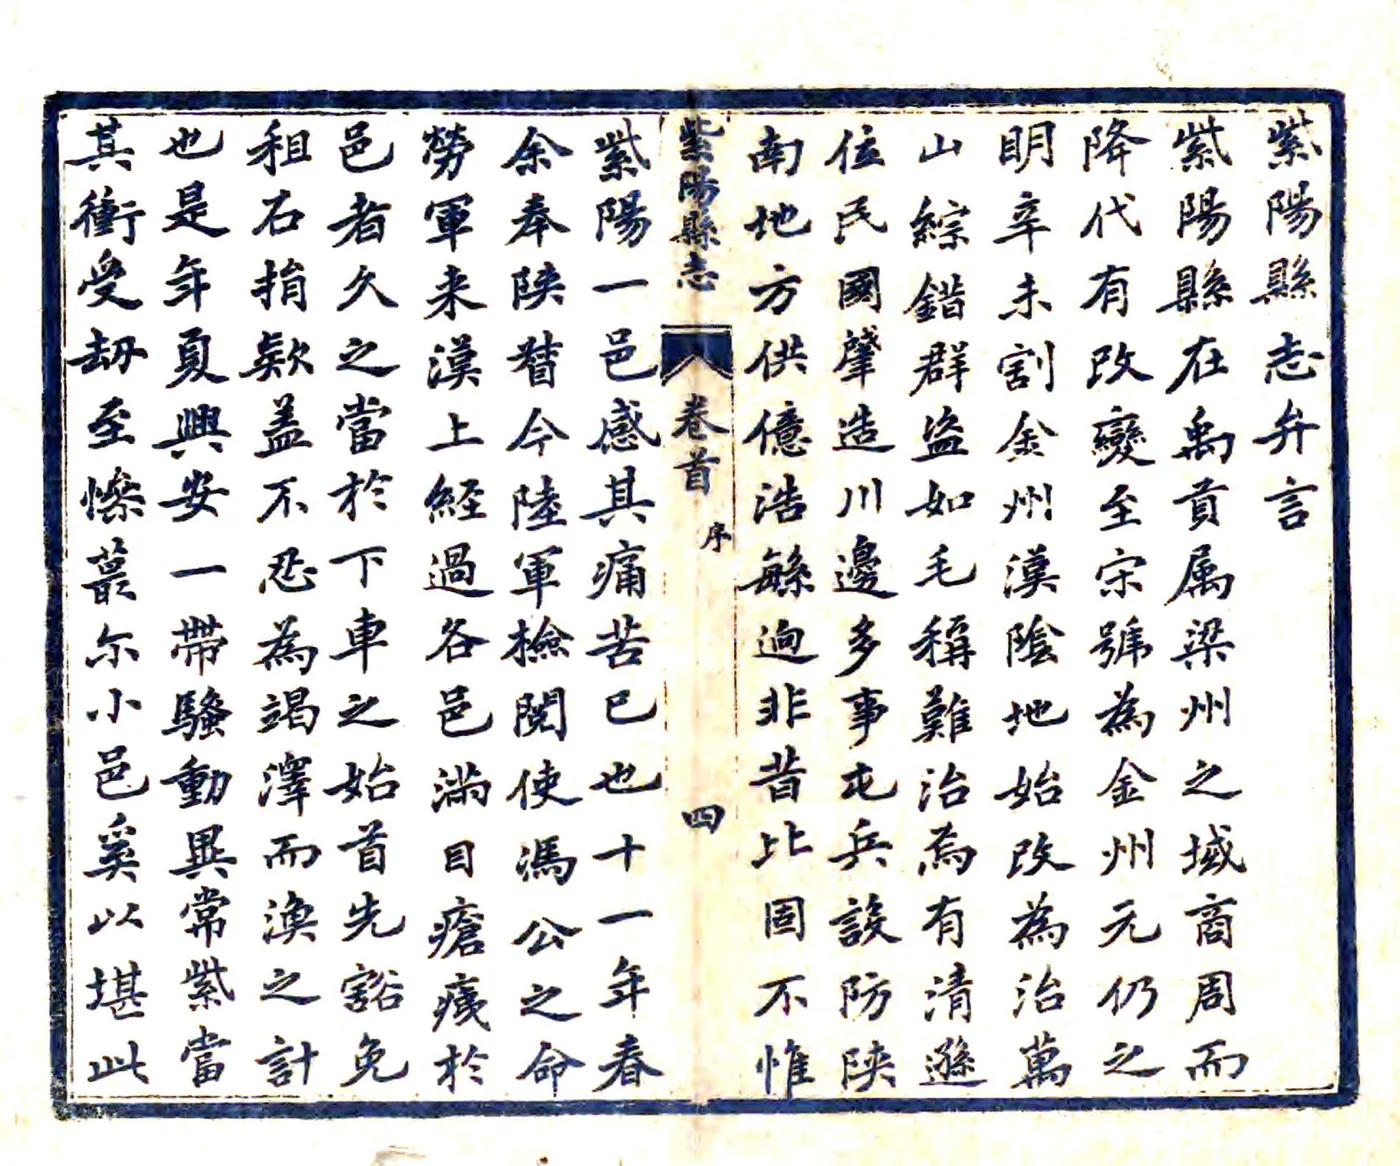 紫陽縣志弁言
紫陽縣在禹貢属梁州之域商周而
降代有改變至宋號為金州元仍之
明辛未割金州漢陰地始改為治萬
山綜錯群盗如毛稱難治焉有清遜
位民國肇造川邊多事屯兵設防陕
南地方供億浩繇逈非昔比固不惟
紫陽縣志
卷首
序
四
紫陽一邑感其痛苦已也十一年春
余奉陕督今陸軍檢閱使馮公之命
勞軍来漢上經過各邑滿目瘡痍於
邑者久之當於下車之始首先豁免
租石捐欵盖不忍為竭澤而漁之計
也是年夏興安一帶騷動異常紫當
其衝受刼至慘蕞尔小邑奚以堪此